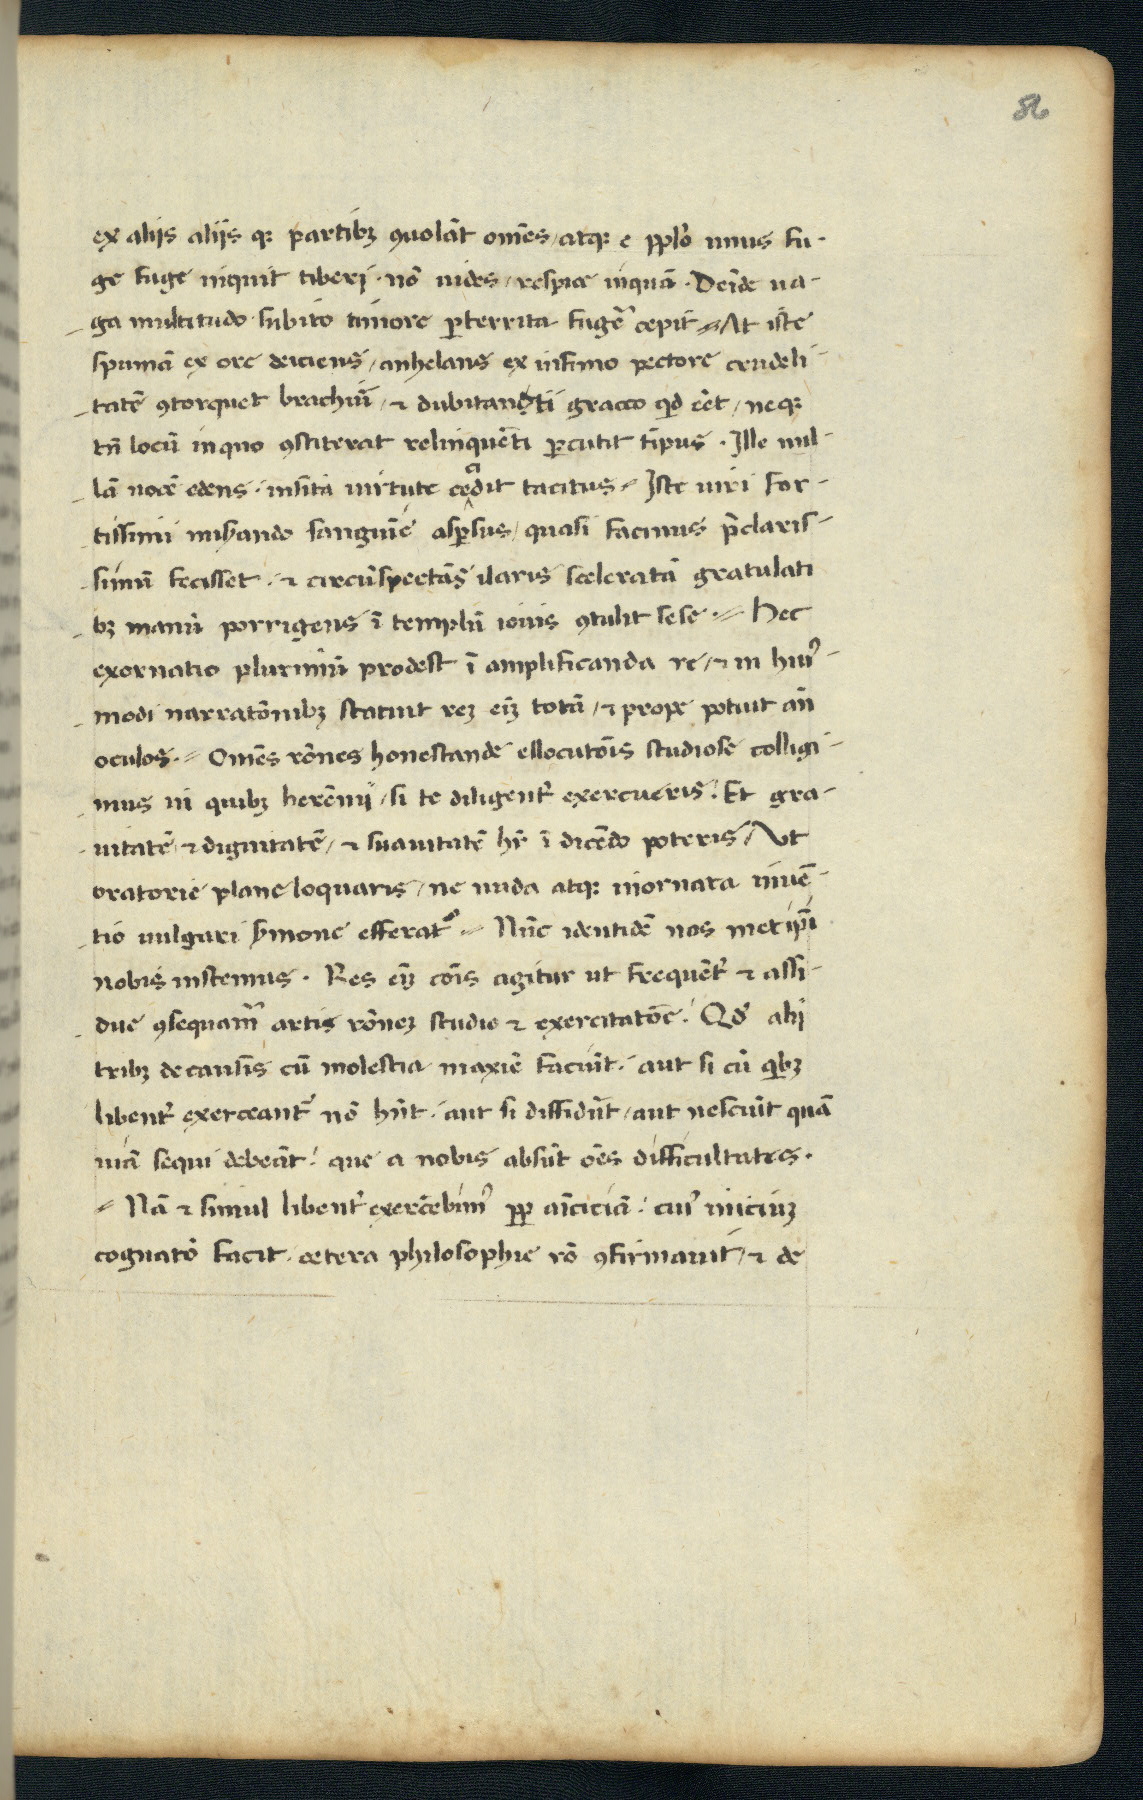 86
ex alijs alijs qꝫ partibꝫ ꝯuolāt omēs / atqꝫ e pplo unus fu-
ge fuge inquit tiberi · nō uides / respice inquā · Deīde ua-
ga multitudo · subito timore ꝑterrita fugē cepit // At iste
spumā ex ore deiciens / anhelans ex infimo pectore crudeli-
tatē ꝯtorquet brachiū / ⁊ dubitandti gracco qd eēt / neqꝫ
tn̄ locū in quo ꝯstiterat relinquēti ꝑcutit tīpus · Ille nul-
lā uocē edens · insita uirtute cōdit tacitus // Iste uiri for-
tissimi mis̄ando sanguīe aspsus / quasi facinus p̄claris-
simū fecisset · ⁊ circūspectās ilaris sceleratā gratulati
bꝫ manū porrigens ī templū iouis ꝯtulit sese · // Hec
exornatio plurimū prodest ī amplificanda re / ⁊ in hui᾽
modi narratōnibꝫ statuit reꝫ eiꝫ totā / ⁊ prope potuit an̄
oculos · // Omēs rōnes honestande ellocutōis studiose colligi-
mus in quibꝫ herēnij / si te diligent᾽ exercueris / Et gra-
uitatē ⁊ dignitatē / ⁊ suauitatē hr̄ ī dicēdo poteris / Ut
oratorie plane loquaris / ne nuda atqꝫ inornata inuē-
tio uulgari s̄mone efferat᾽ // Nūc identidē nos met ip̄i
nobis instemus · Res eiꝫ cōis agitur ut frequēt᾽ ⁊ assi-
due ꝯsequam᾽ artis rōneꝫ studio ⁊ exercitatōe / Qd᾽ alij
tribꝫ de causis cū molestia maxīe faciūt · aut si cū qibꝫ
libent᾽ exerceant᾽ nō hn̄t · aut si diffidūt / aut nesciūt quā
uiā sequi debeāt / que a nobis absūt oēs difficultates ·
// Nā ⁊ simul libent᾽ exercēbim᾽ pp am̄iciciā / cui᾽ iniciuꝫ
cognatō facit · cetera philosophie rō ꝯfirmauit / ⁊ de